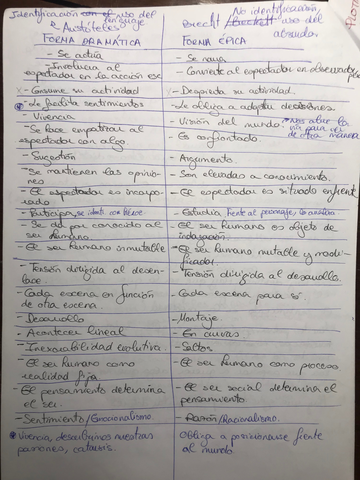 Identificación con el uso del lenguaje
No identificación,
Aristóteles
Brecht uso del absurdo
FORMA DRAMÁTICA
FORMA ÉPICA
- Se actúa
- Se narra
- Involucra al espectador en la acción esc
- Convierte al espectador en observador
- Consume su actividad
- Despierta su actividad.
- Le facilita sentimientos
- Le obliga a adoptar decisiones.
- Vivencia
- Visión del mundo. nos abre la vía para ver de otra manera
- Se hace empatizar al espectador con algo
- Es confrontado.
- Sugestión
- Argumento
- Se mantienen las opiniones
- Son elevadas a conocimiento.
- El espectador es incorporado
- El espectador es situado enfrente
- Participa, se identi. con héroe.
- Estudia frente al personaje, lo analiza
- Se da por conocido al ser humano
- El ser humano es objeto de indagación.
- El ser humano inmutable
- El ser humano mutable y modificador.
- Tensión dirigida al desenlace.
- Tensión dirigida al desarrollo.
- Cada escena en función de otra escena
- Cada escena para sí.
- Desarrollo
- Montaje
- Acontecer lineal
- En curvas
- Inexorabilidad evolutiva.
- Saltos
- El ser humano como realidad fija
- El ser humano como proceso
- El pensamiento determina el ser.
- El ser social determina el pensamiento.
- Sentimiento/Emocionalismo.
- Razón/Racionalismo.
Vivencia, descubrimos nuestras pasiones, catarsis.
Obliga a posicionarse frente al mundo.